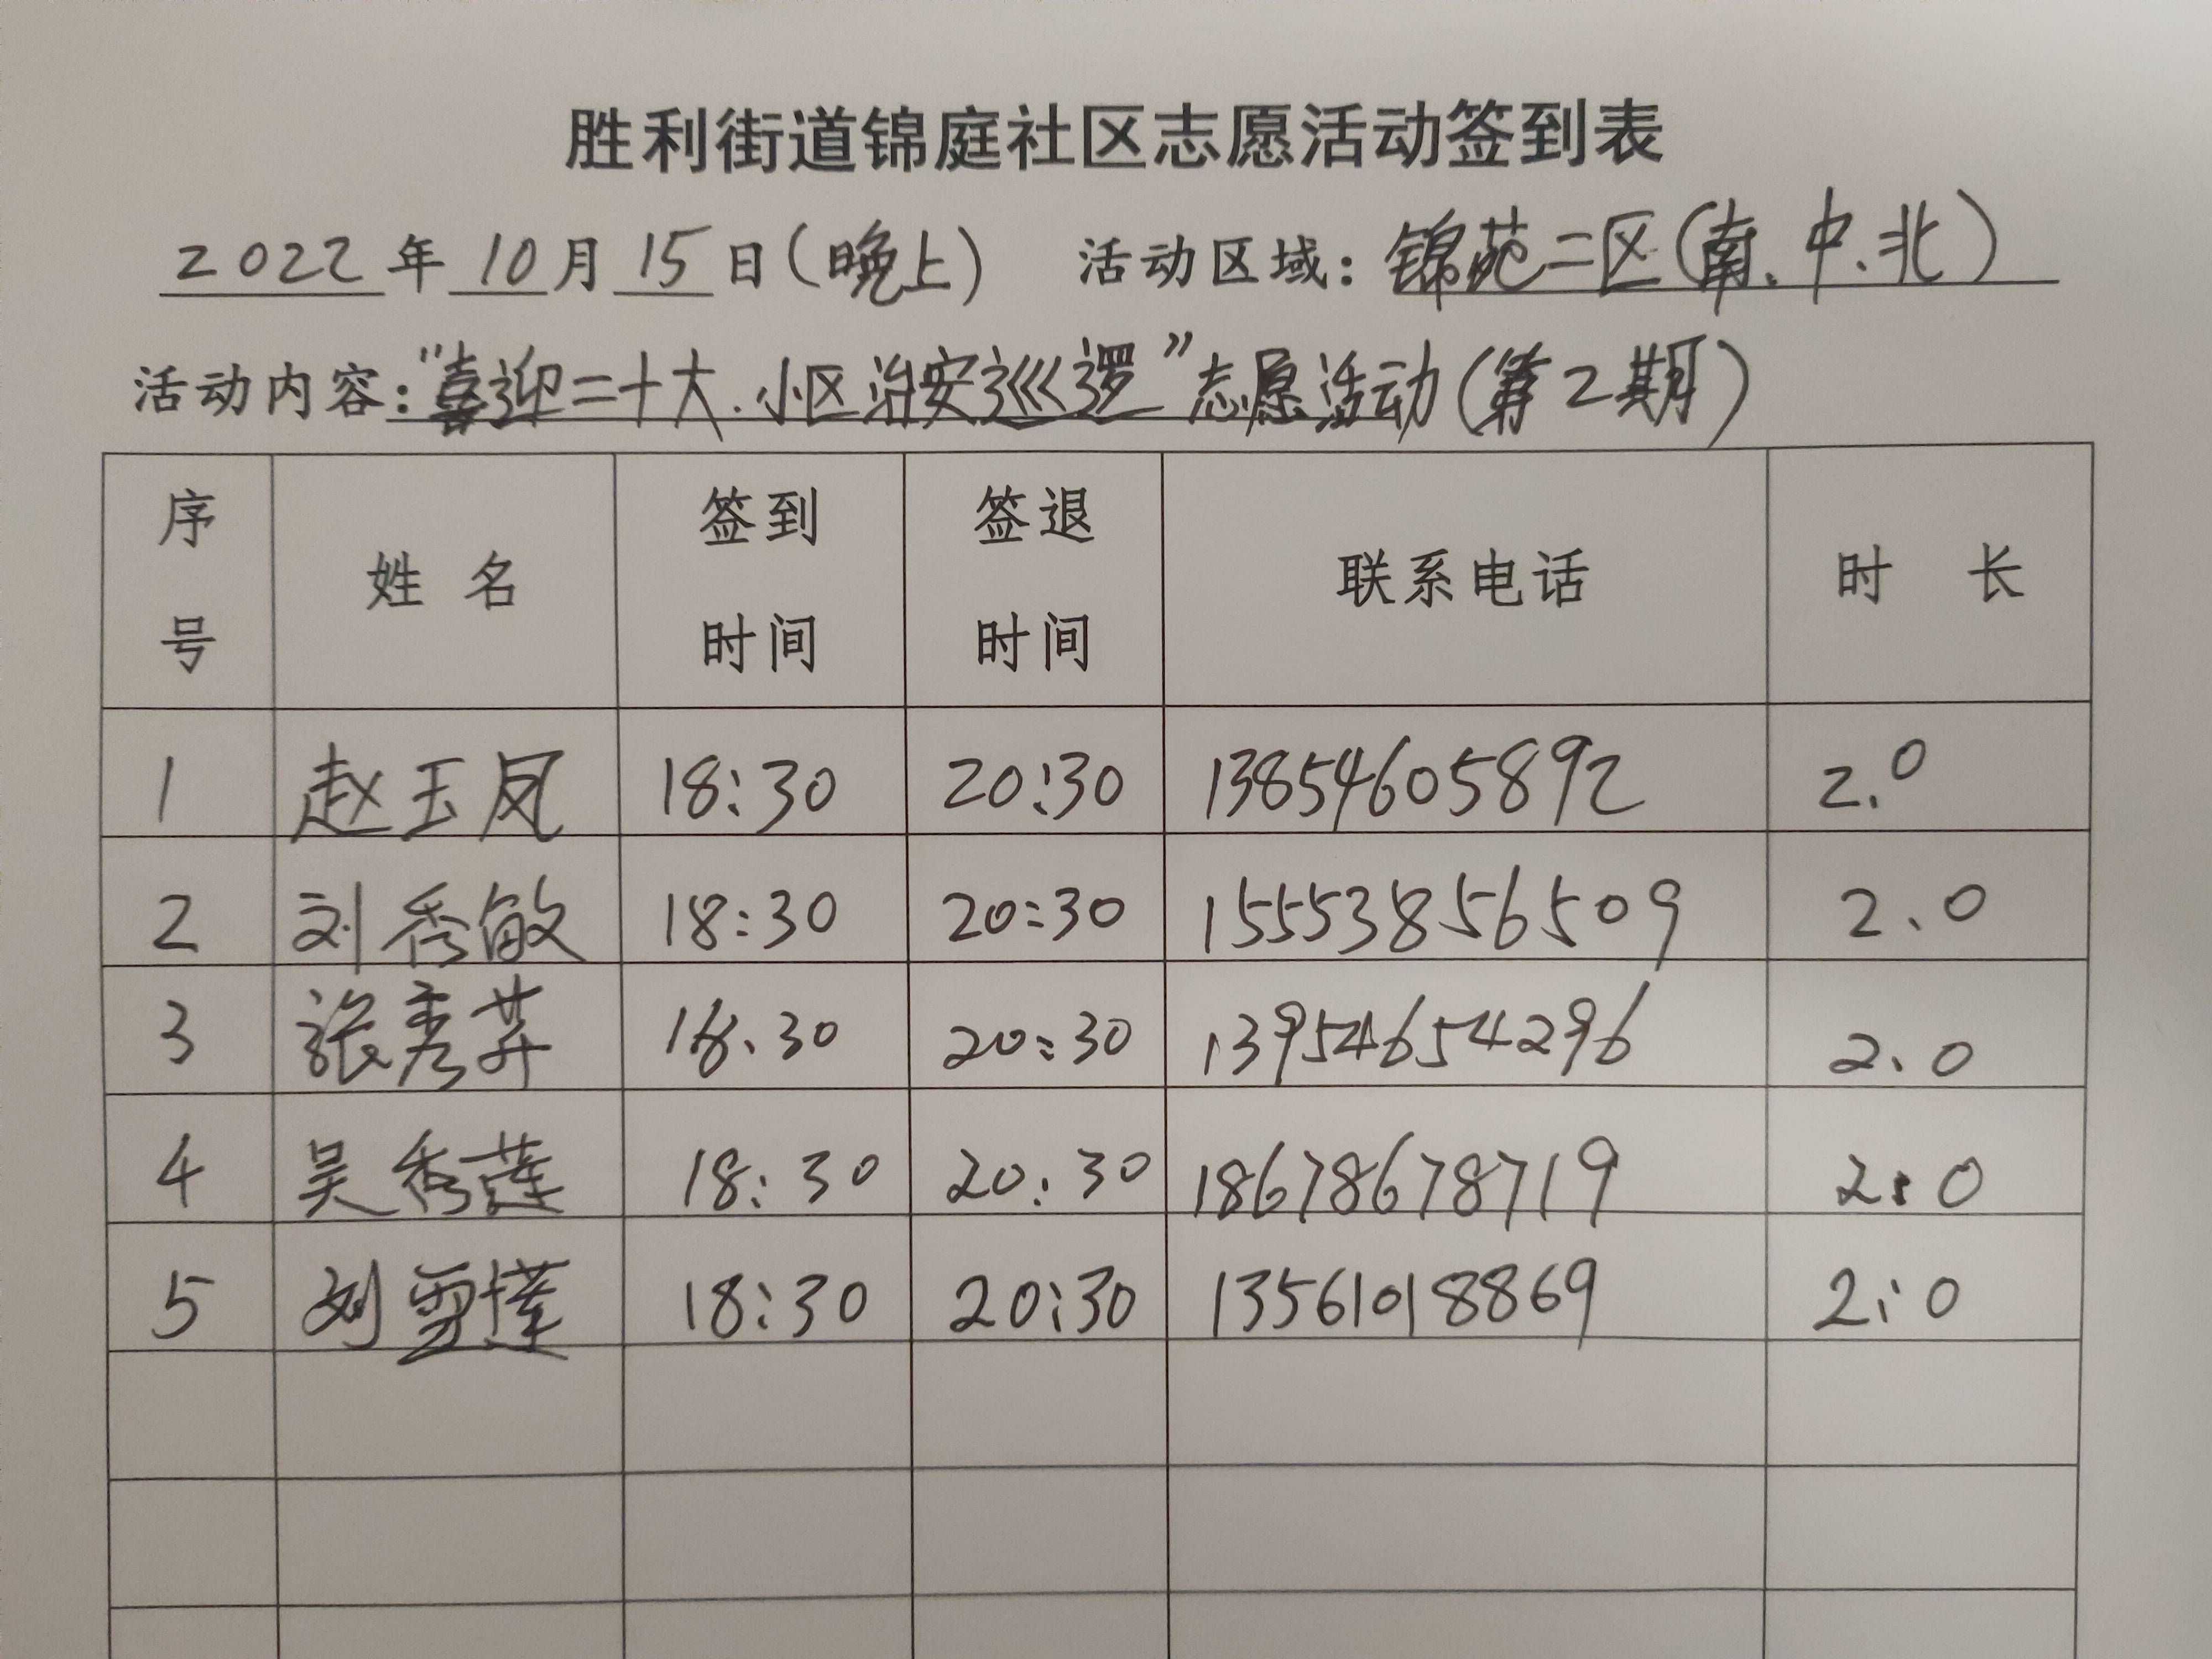 胜利街道锦庭社区志愿活动签到表
2022年10月15日(晚上) 活动区域：锦苑二区(南、中、北)
活动内容："喜迎二十大.小区治安巡逻"志愿活动(第2期)
序号 姓名 签到时间 签退时间 联系电话 时长
1 赵玉凤 18:30 20:30 13854605892 2.0
2 刘秀敏 18:30 20:30 15553856509 2.0
3 张秀 18.30 20:30 13954654296 2.0
4 吴秀莲 18:30 20:30 18678678719 2.0
5 刘雪莲 18:30 20:30 13561018869 2:0